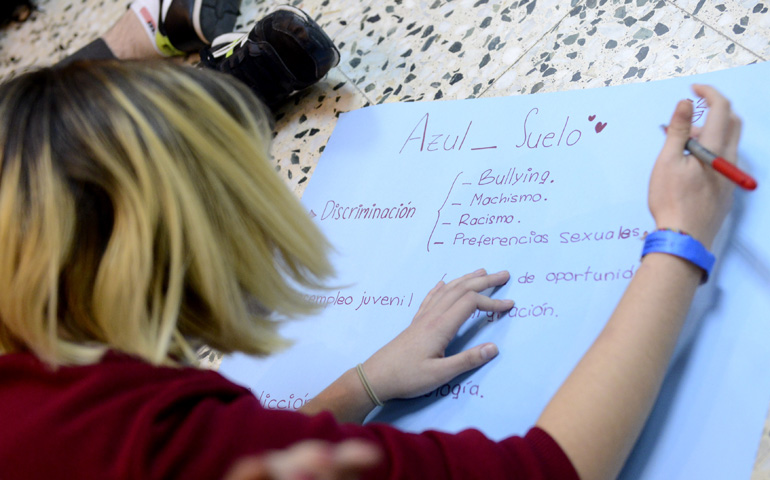 Azul_ Suelo
Discriminación
- Bullying.
- Machismo.
- Racismo.
- Preferencias sexuales.
de oportunid
empleo juvenil
gración.
dicción
ología.